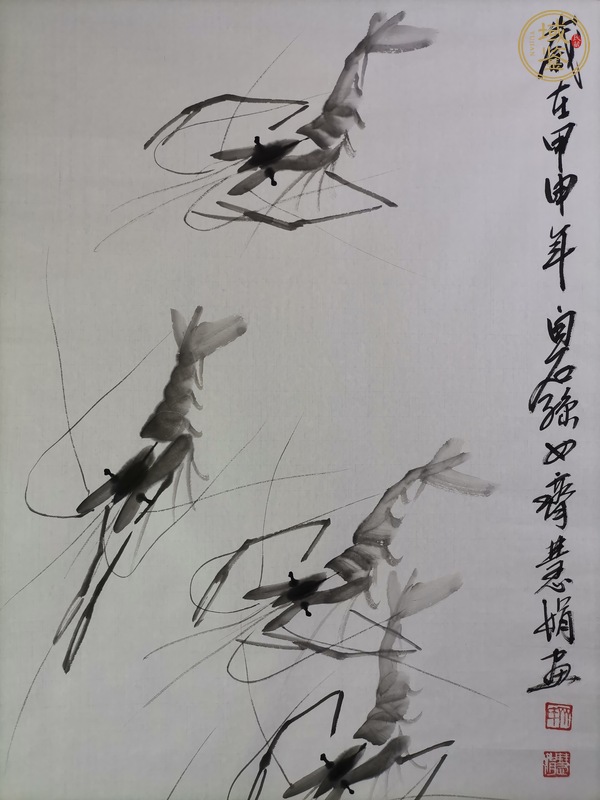 歲在甲申年白石孫女齊慧娟畫